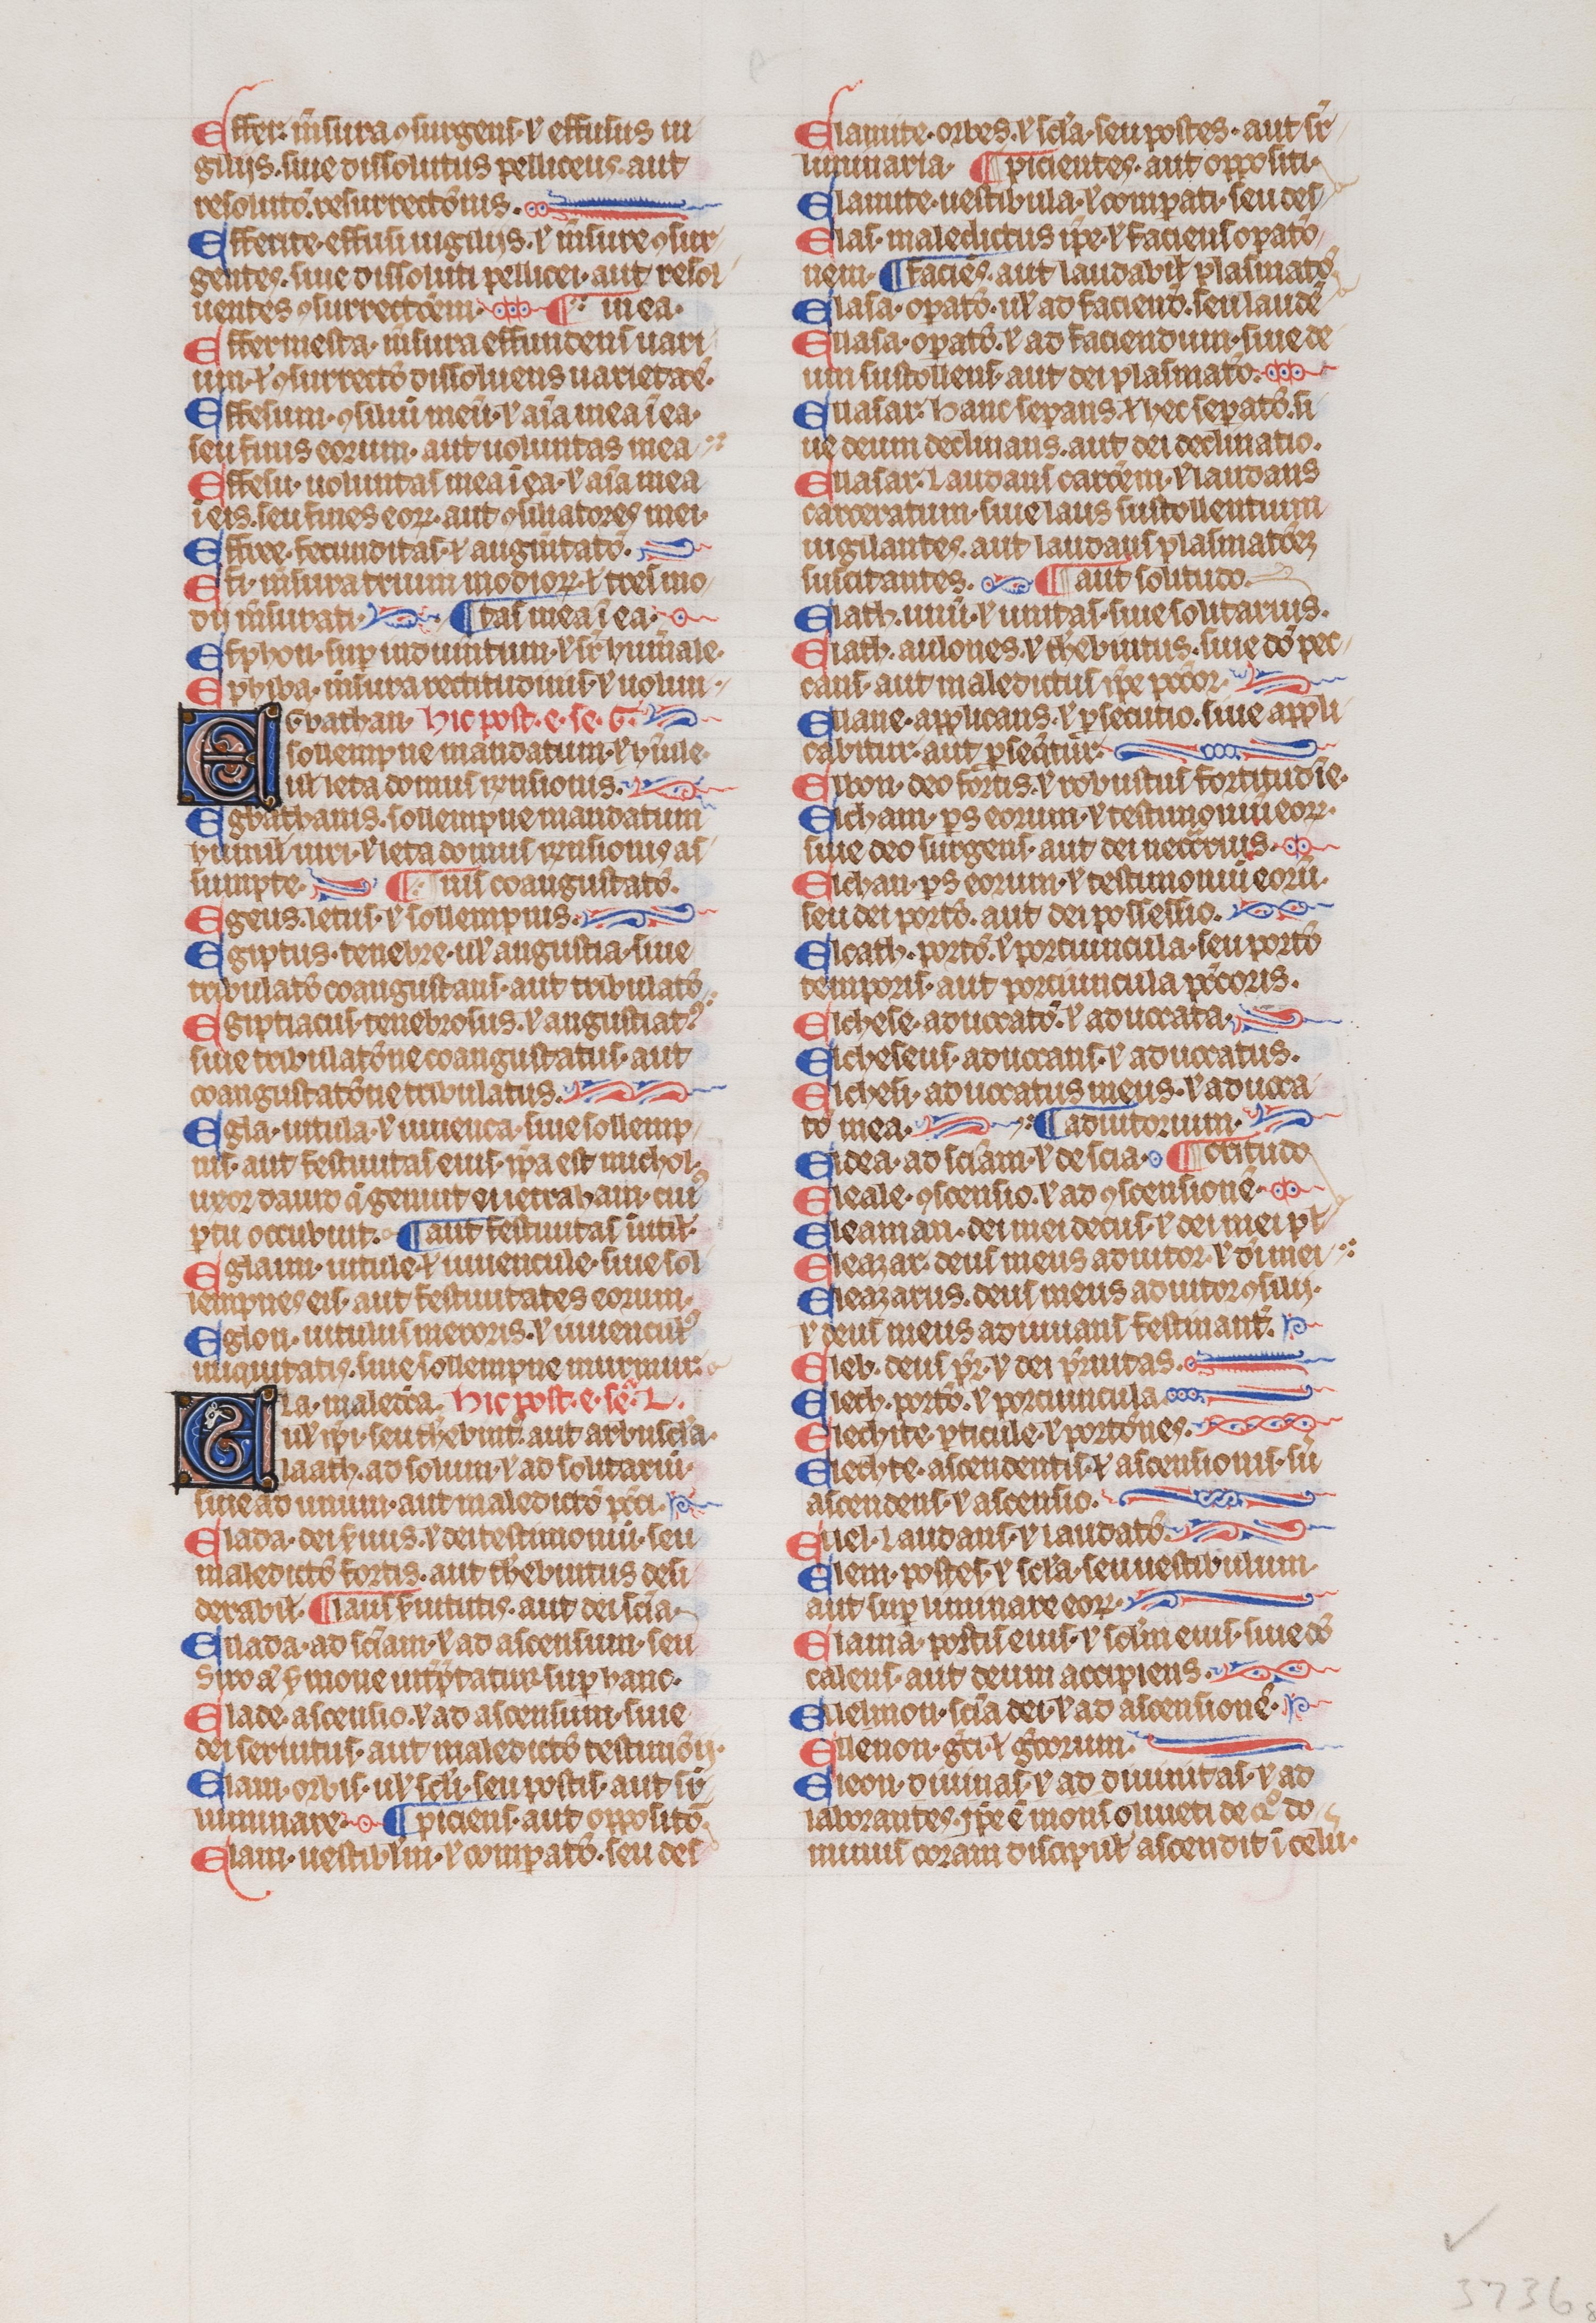 Effer. m̄sura ꝯsurgens. ⁊ effusus ui
gilijs. siue dissolutus pelliceus. aut
resolutō. resurrectōnis.
Efferite. effusi uigilijs. ⁊ m̄sure ꝯsur
gentes. siue dissoluti pellicei. aut resol
uentes ꝯsurrectōem. ¶ in ea.
Effermesta. m̄sura effundens uari
um. ⁊ ꝯsurrectō dissoluens uarietatē.
Effesum. ꝯsiliū meū. ⁊ aīa mea ī ea.
seu finis eorum. aut uoluntas mea
Effesu. uoluntas mea ī ea. ⁊ aīa mea
ī eis. seu fines eoꝝ. aut ꝯsiliatores mei.
Effree. fecunditas. ⁊ augm̄tatō.
Efi. m̄sura trium modioꝝ. ⁊ tres mo
dij m̄surati. ¶ tas mea ī ea.
Efphon. suꝑ indumtum. ⁊ suꝑ hum̄ale.
Ephiba. m̄sura rectitudinis. ⁊ uolun
EGbathan. Hic post. e. se. G.
sollempne mandatum. ⁊ hūile.
ul̄ leta domus irrisionis.
Egbathanis. sollempne mandatum
humil̄ uiri. ⁊ leta domus irrisionis as
sumpte. ¶ nis coangustatō.
Egeus. letus. ⁊ sollempnis.
Egiptus. tenebre. ul̄ angustia. siue
tribulatō coangustans. aut tribulatō
Egiptiacus. tenebrosus. ⁊ angustiatꝰ.
siue tribulatōne coangustatus. aut
coangustatōne tribulatus.
Egla. uitula. ⁊ iuuenca. siue sollemp
nis. aut festiuitas eius. ip̄a est michol.
uxor dauid q̄ genuit ei ietraham. cuiꝰ
ꝑtu occubuit. ¶ aut festiuitas inutil̄.
Eglaim. uitule. ⁊ iuuencule. siue sol
lempnes eis. aut festiuitates eorum.
Eglon. uitulus meroris. ⁊ iuuenculꝰ
iniquitatis. siue sollempne murmur.
ELa. maledcā. Hic post. e. se. L.
ul̄ ip̄i. seu thebintꝰ. aut arbuscl̄a.
laath. ad solum. ⁊ ad solitariū.
siue ad unum. aut maledictō pc̄ci.
Elada. dei s̄uus. ⁊ dei testimoniū. seu
maledictō fortis. aut thebintus desi
derabil̄. ¶ laus s̄uitutis. aut dei sc̄ia.
Ellada. ad sc̄iam. ⁊ ad ascensum. seu
siro q̄ s̄mone int̄p̄tatur. suꝑ hanc.
Elade. ascensio. ⁊ ad ascensum. siue
dei seruitus. aut maledictō testimōij.
Elam. orbis. ul̄ scl̄i. seu postis. aut sr̄
liminare. ¶ piciens. aut oppositō
Elam. uestibl̄m. ⁊ comparatō. seu des
Elamite. orbes. ⁊ scl̄a. seu postes. aut sr̄
luminaria. ¶ picientes. aut oppositi.
Elamite. uestibula. ⁊ comparati. seu des
Elas. maledictus ip̄e. ⁊ faciens oꝑatō
nem. ¶ facies. aut laudabil̄ plasmatō
Elasa. oꝑatō. ul̄ ad faciendū. seu laudē
Ellasa. oꝑatō. ⁊ ad faciendum. siue de
um sustollens. aut dei plasmatō.
Ellasar. hanc seꝑans. ⁊ hec seꝑatō. si
ue deum declinans. aut dei declinatio.
Ellasar. laudans carcēem. ⁊ laudans
carceratum. siue laus sustollentium
uigilantes. aut laudans plasmatōeꝫ
suscitantes. ¶ aut solitudo.
Elath. unū. ⁊ unitas. siue solitarius.
Elath. aulones. ⁊ thebintus. siue dō pec
cans. aut maledictus ip̄e pccō̄r.
Elcane. applicans. ⁊ ꝑsecutio. siue appli
cabitur. aut ꝑseq̄tur.
Elbon. deo fortis. ⁊ robustus fortitudīe.
Elcham. ꝑs eorum. ⁊ testimoniū eoꝝ.
siue deo surgens. aut dei nec̄c̄rius.
Elchan. ꝑs eorum. ⁊ testimoniū eorū.
seu dei portō. aut dei possessio.
Elcath. portō. ⁊ portiuncula. seu portō
temporis. aut portiuncula pc̄coris.
Elchese. aduocatō. ⁊ aduocata.
Elcheseus. aduocans. ⁊ aduocatus.
Elchesi. aduocatus meus. ⁊ aduoca
tō mea. ¶ adiutorium.
Eldea. ad sc̄iam. ⁊ de sc̄ia. ¶ ctitudo
Eleale. ꝯscensio. ⁊ ad ꝯscensionē.
Eleaman. dei mei decus. ⁊ dei mei pl̄
Eleazar. deus meus adiutor. ⁊ dī mei
Eleazarus. deus meus adiutor ꝯsilij.
⁊ deus meus adiuuans festinant̄.
Elieb. deus pr̄. ⁊ dei pr̄nitas.
Elech. portō. ⁊ portiuncula.
Elechite. ꝑticule. ⁊ portōnes.
Elechte. ascendentis. ⁊ ascensionis. sū
ascendens. ⁊ ascensio.
Eliel. laudans. ⁊ laudatō.
Elem. postes. ⁊ scl̄a. seu uestibulum.
aut suꝑ liminare eoꝝ.
Elama. postis eius. ⁊ scl̄m eius. siue dō
calens. aut deum accipiens.
Ellelmon. sc̄ia dei. ⁊ ad ascensionē.
Ellenon. gc̄i. ⁊ gc̄orum.
Eleon. diuinas. ⁊ ad diuinitas. ⁊ ad
laborantes. ip̄e ē mons oliueti de qͦ do
minus coram discipul̄ ascendit ī celū.
3736